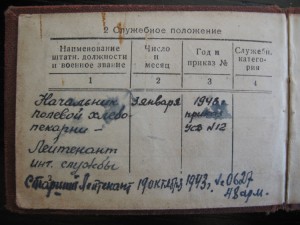 2 Служебное положение
Наименование штатн. должности и военное звание
Число и месяц
Год и приказ №
Служебн. категория
1 2 3 4
Начальник 3 января 1943 г.
полевой хлебо- приказ
пекарни – УСВ №12
Лейтенант
инт. службы
Старший Лейтенант 19 октября 1943 г. № 0627